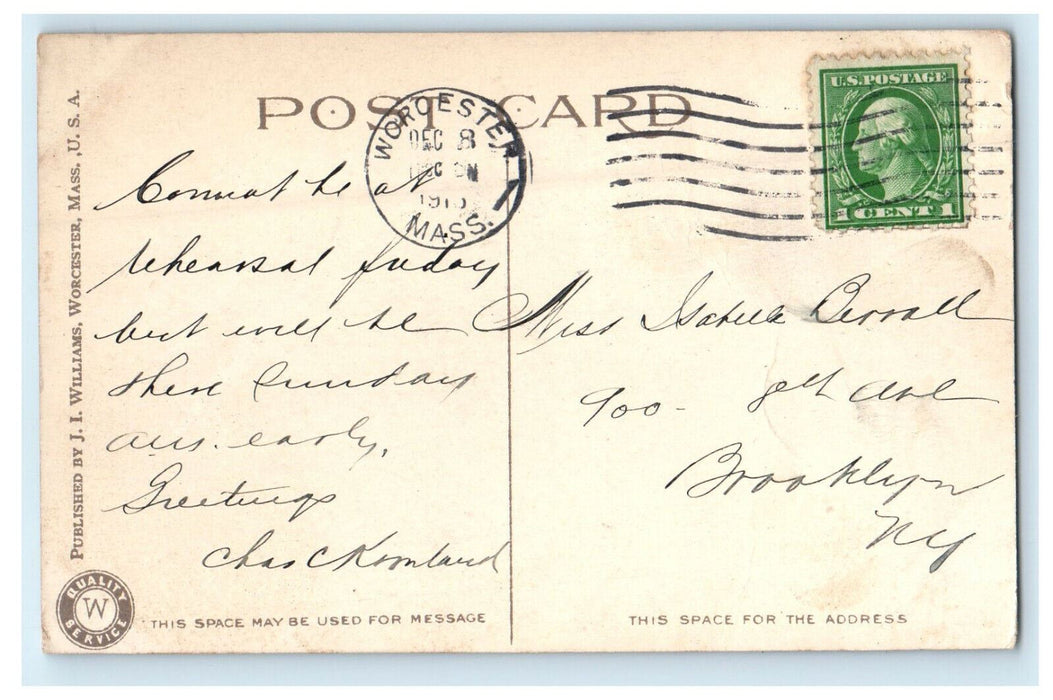 POST CARD
WORCESTER
DEC 8
MASS.
U.S. POSTAGE
1 CENT 1
PUBLISHED BY J. I. WILLIAMS, WORCESTER, MASS., U. S. A.
Connot be at
rehearsal friday
but will be
there Sunday
ans. early,
Greetings
Chas C
Miss Isabella
900 - 8th Ave
Brooklyn
NY
QUALITY
W
SERVICE
THIS SPACE MAY BE USED FOR MESSAGE
THIS SPACE FOR THE ADDRESS